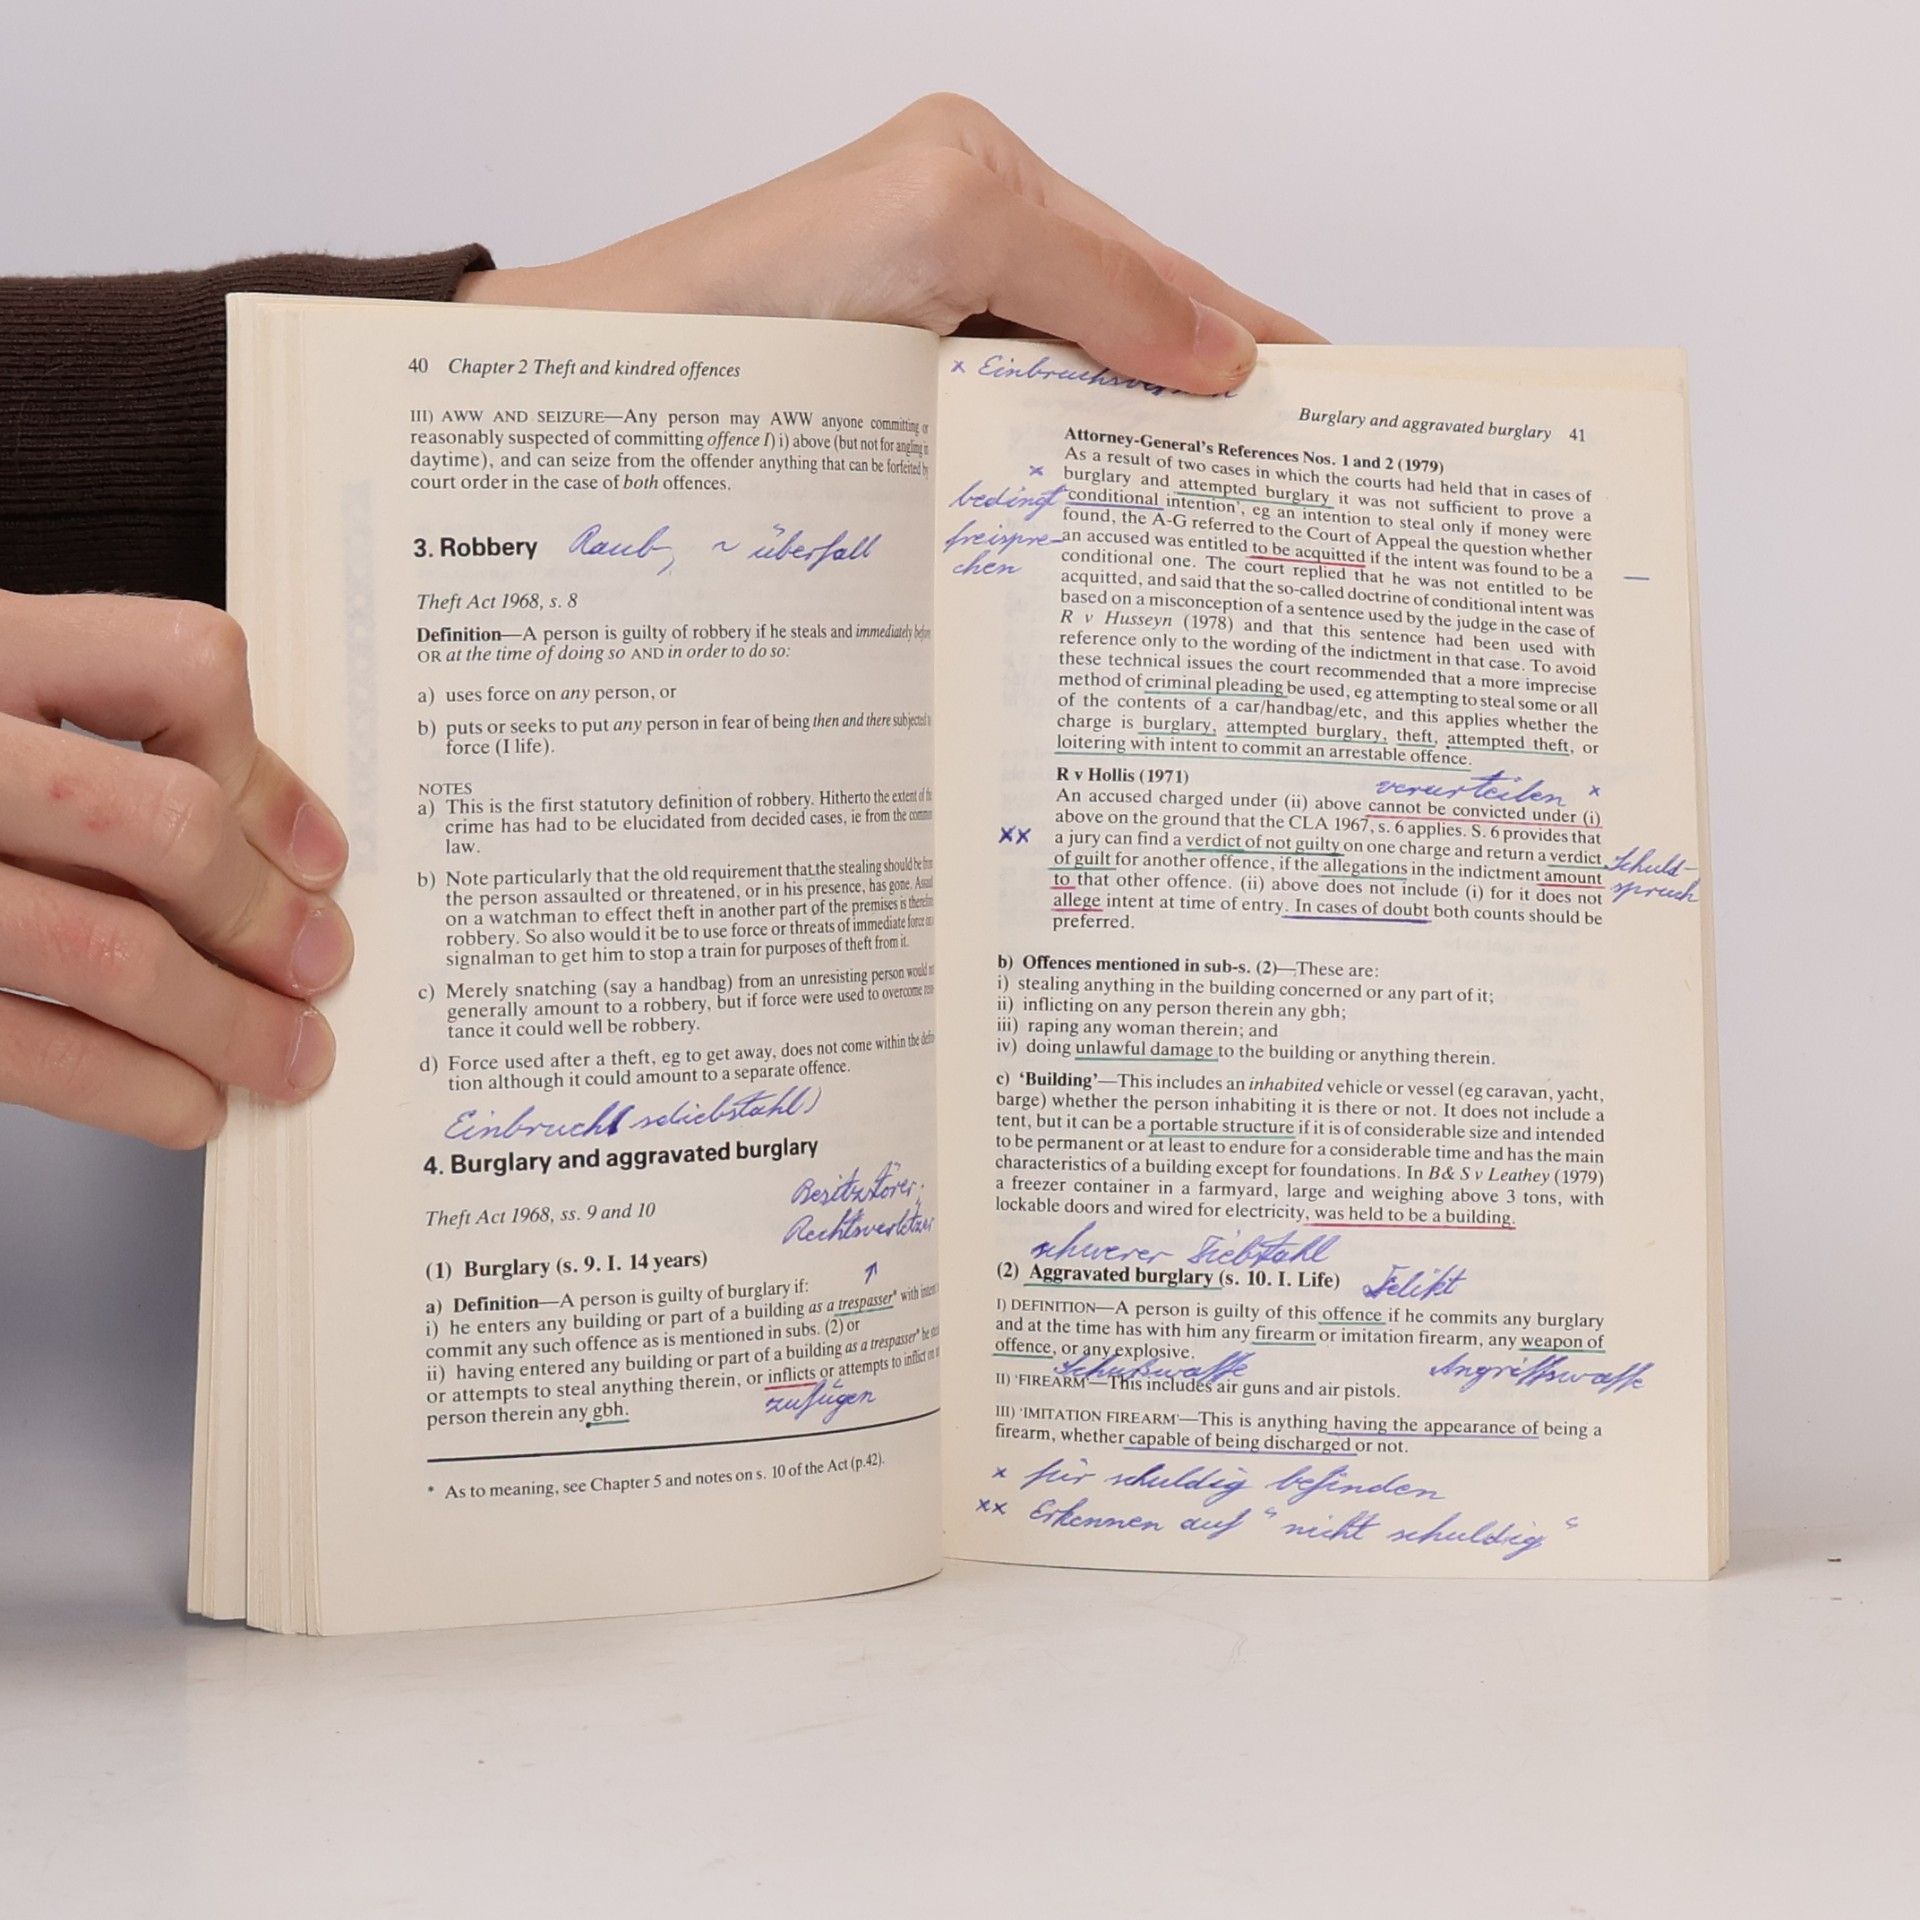 40 Chapter 2 Theft and kindred offences
III) AWW AND SEIZURE—Any person may AWW anyone committing or
reasonably suspected of committing offence I) i) above (but not for angling in
daytime), and can seize from the offender anything that can be forfeited by
court order in the case of both offences.
3. Robbery Raub, ~ überfall
Theft Act 1968, s. 8
Definition—A person is guilty of robbery if he steals and immediately before
OR at the time of doing so AND in order to do so:
a) uses force on any person, or
b) puts or seeks to put any person in fear of being then and there subjected to
force (I life).
NOTES
a) This is the first statutory definition of robbery. Hitherto the extent of the
crime has had to be elucidated from decided cases, ie from the common
law.
b) Note particularly that the old requirement that the stealing should be from
the person assaulted or threatened, or in his presence, has gone.
on a watchman to effect theft in another part of the premises is therefore
robbery. So also would it be to use force or threats of immediate force on a
signalman to get him to stop a train for purposes of theft from it.
c) Merely snatching (say a handbag) from an unresisting person would not
generally amount to a robbery, but if force were used to overcome resis-
tance it could well be robbery.
d) Force used after a theft, eg to get away, does not come within the defini-
tion although it could amount to a separate offence.
Einbruch(sdiebstahl)
4. Burglary and aggravated burglary
Besitzstörer;
Theft Act 1968, ss. 9 and 10
Rechtsverletzer
(1) Burglary (s. 9. I. 14 years)
a) Definition—A person is guilty of burglary if:
i) he enters any building or part of a building as a trespasser* with intent
commit any such offence as is mentioned in subs. (2) or
ii) having entered any building or part of a building as a trespasser* he
or attempts to steal anything therein, or inflicts or attempts to inflict on
person therein any gbh.
zufügen
* As to meaning, see Chapter 5 and notes on s. 10 of the Act (p.42).
x
Burglary and aggravated burglary 41
Attorney-General's References Nos. 1 and 2 (1979)
As a result of two cases in which the courts had held that in cases of
x burglary and attempted burglary it was not sufficient to prove a
bedingt 'conditional intention', eg an intention to steal only if money were
found, the A-G referred to the Court of Appeal the question whether
freispre- an accused was entitled to be acquitted if the intent was found to be a
chen conditional one. The court replied that he was not entitled to be
acquitted, and said that the so-called doctrine of conditional intent was
based on a misconception of a sentence used by the judge in the case of
R v Husseyn (1978) and that this sentence had been used with
reference only to the wording of the indictment in that case. To avoid
these technical issues the court recommended that a more imprecise
method of criminal pleading be used, eg attempting to steal some or all
of the contents of a car/handbag/etc, and this applies whether the
charge is burglary, attempted burglary, theft, attempted theft, or
loitering with intent to commit an arrestable offence.
R v Hollis (1971) verurteilen x
An accused charged under (ii) above cannot be convicted under (i)
above on the ground that the CLA 1967, s. 6 applies. S. 6 provides that
xx a jury can find a verdict of not guilty on one charge and return a verdict
of guilt for another offence, if the allegations in the indictment amount Schuld-
to that other offence. (ii) above does not include (i) for it does not spruch
allege intent at time of entry. In cases of doubt both counts should be
preferred.
b) Offences mentioned in sub-s. (2)—These are:
i) stealing anything in the building concerned or any part of it;
ii) inflicting on any person therein any gbh;
iii) raping any woman therein; and
iv) doing unlawful damage to the building or anything therein.
c) 'Building'—This includes an inhabited vehicle or vessel (eg caravan, yacht,
barge) whether the person inhabiting it is there or not. It does not include a
tent, but it can be a portable structure if it is of considerable size and intended
to be permanent or at least to endure for a considerable time and has the main
characteristics of a building except for foundations. In B & S v Leathey (1979)
a freezer container in a farmyard, large and weighing above 3 tons, with
lockable doors and wired for electricity, was held to be a building.
schwerer Diebstahl
(2) Aggravated burglary (s. 10. I. Life) Delikt
I) DEFINITION—A person is guilty of this offence if he commits any burglary
and at the time has with him any firearm or imitation firearm, any weapon of
offence, or any explosive.
Schußwaffe Angriffswaffe
II) 'FIREARM'—This includes air guns and air pistols.
III) 'IMITATION FIREARM'—This is anything having the appearance of being a
firearm, whether capable of being discharged or not.
x für schuldig befinden
xx Erkennen auf "nicht schuldig"